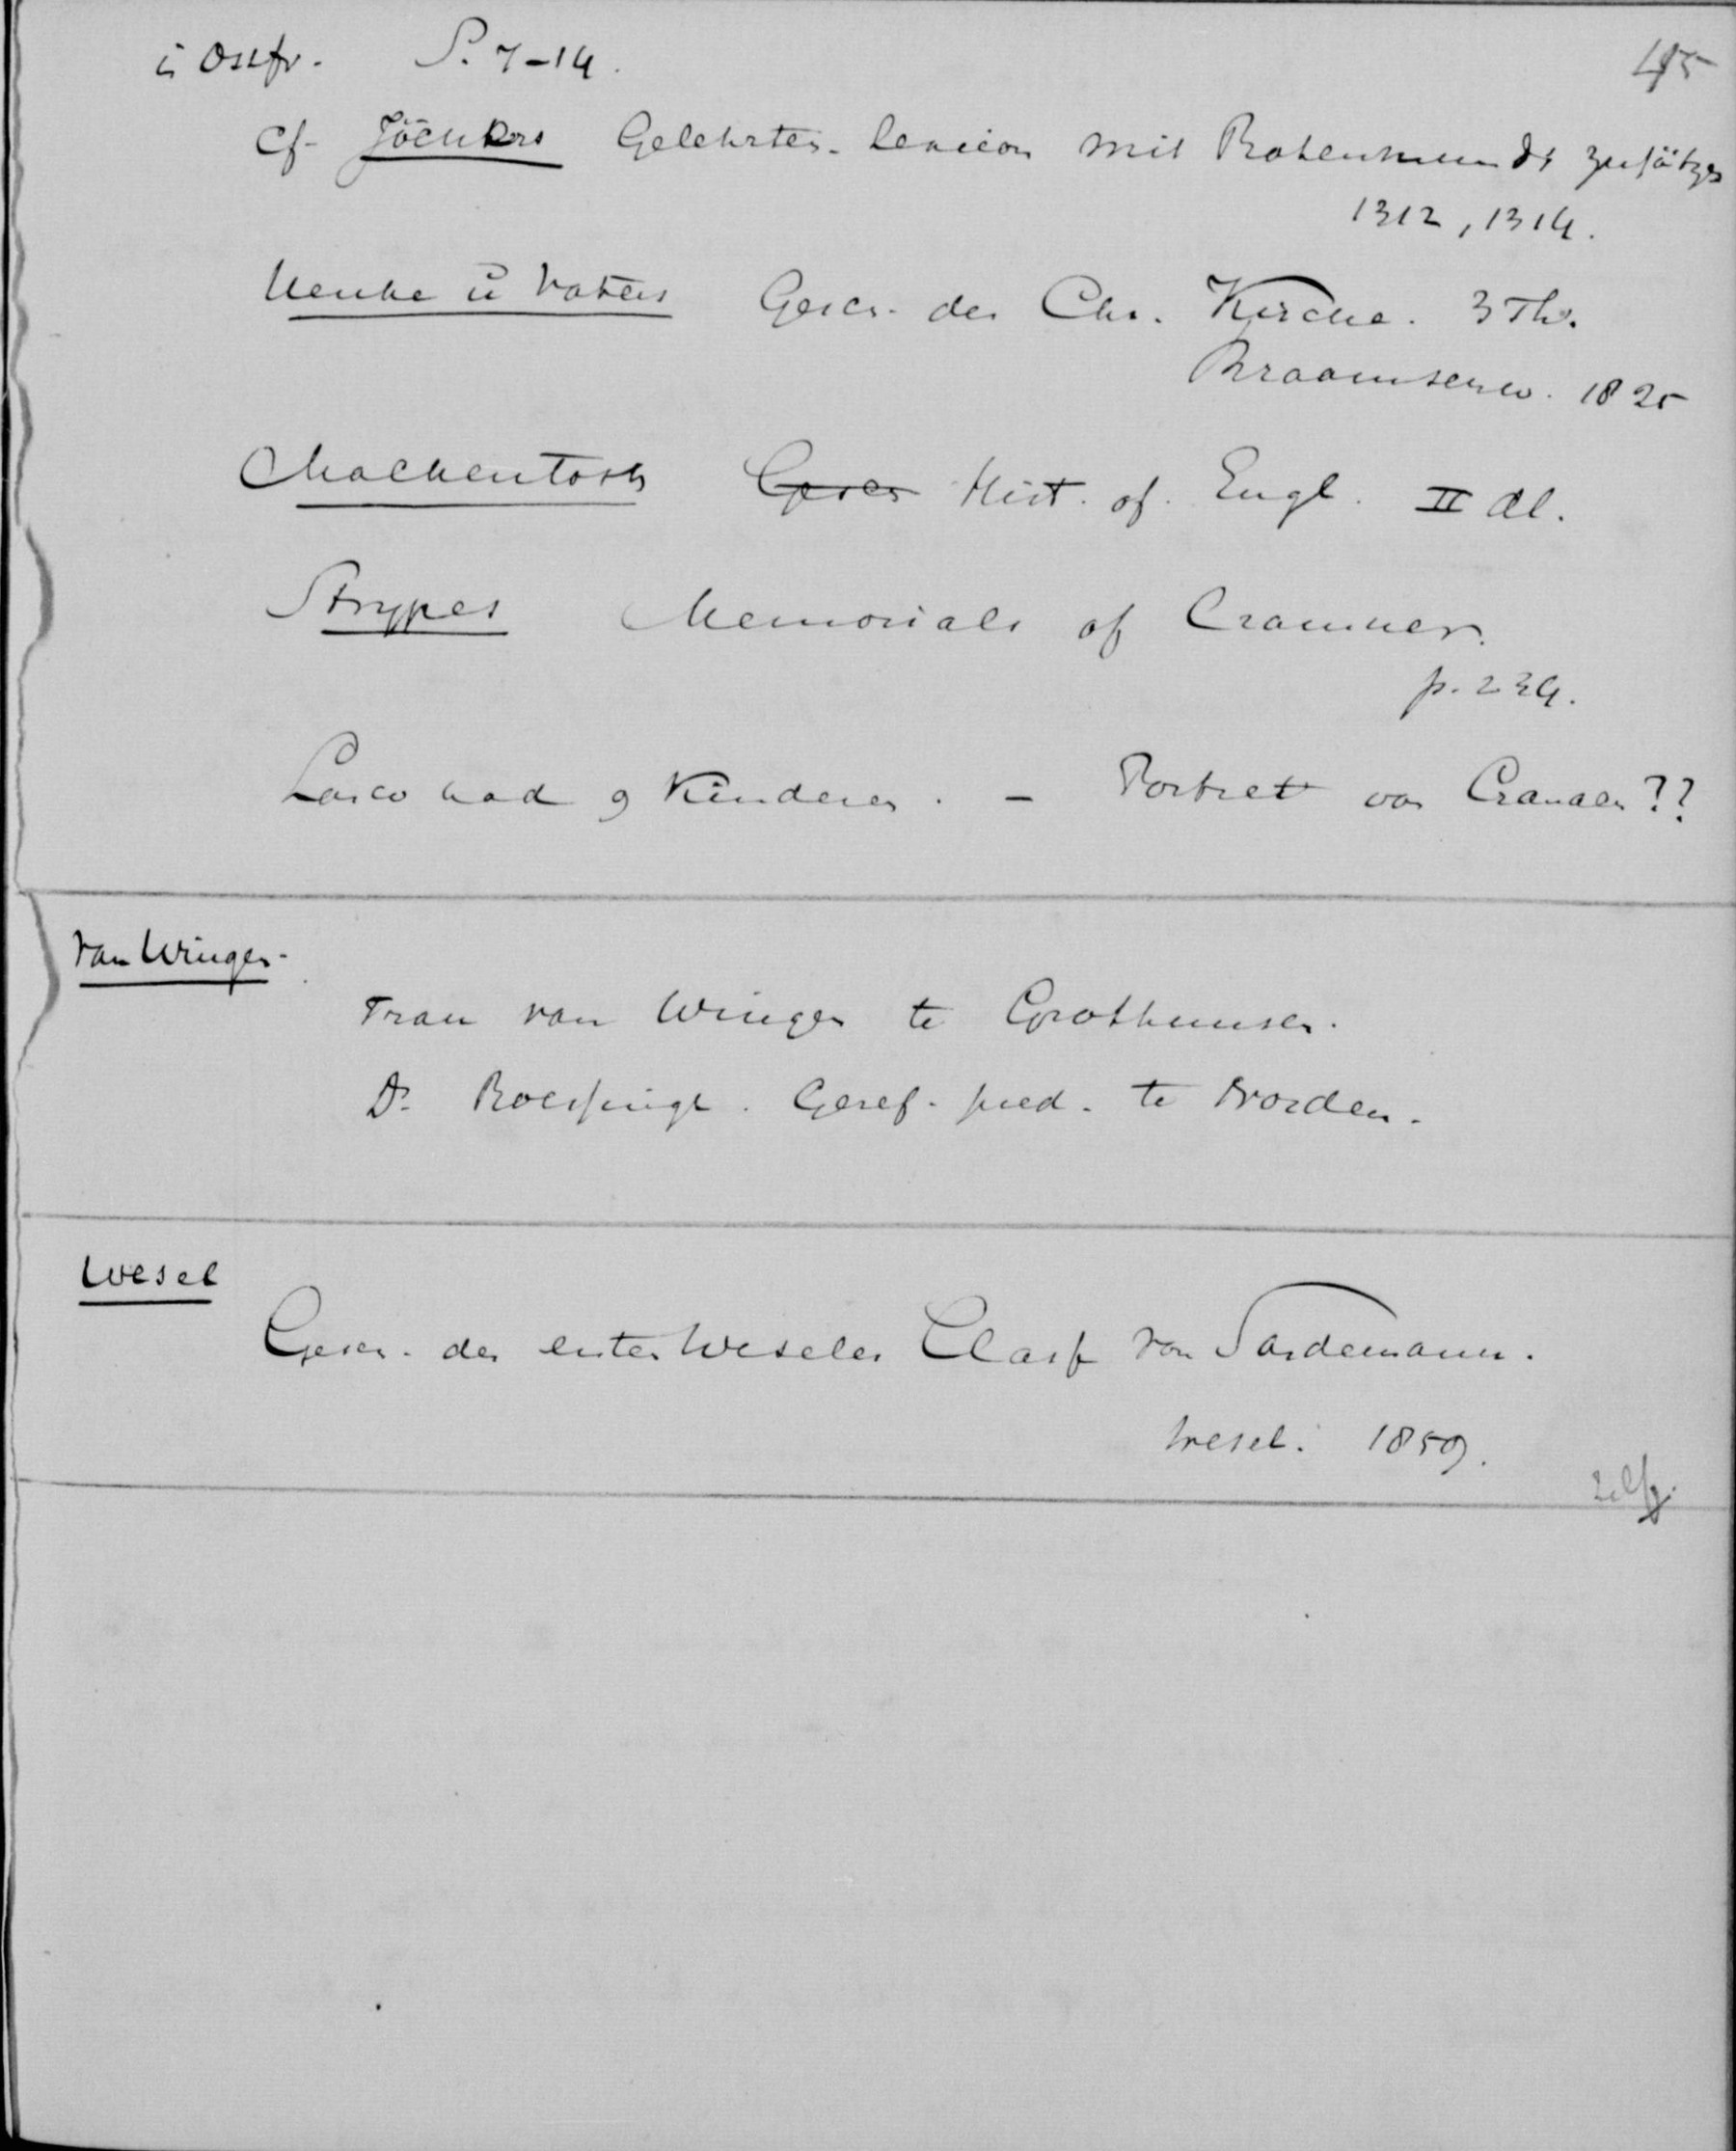 in Ostfr. S. 7-14.
45
Cf. Jöchers Gelehrten-Lexicon mit Rotermunds Zusätzen
1312, 1314.
Henke ü Vaters Gesch. der Chr. Kirche. 3 Th.
Braamschw. 1825
Mackentosh Gesch Hist. of. Engl. II dl.
Strypes Memorials of Cranmer.
p. 234.
Lasco had 9 Kinderen. - Portret van Cranach??
van Wingen.
Frau van Wingen te Grothumsen.
Ds. Roessingh. Geref. pred. te Norden.
Wesel
Gesch. der ersten Weseler Class von Sardemann.
Wesel. 1859.